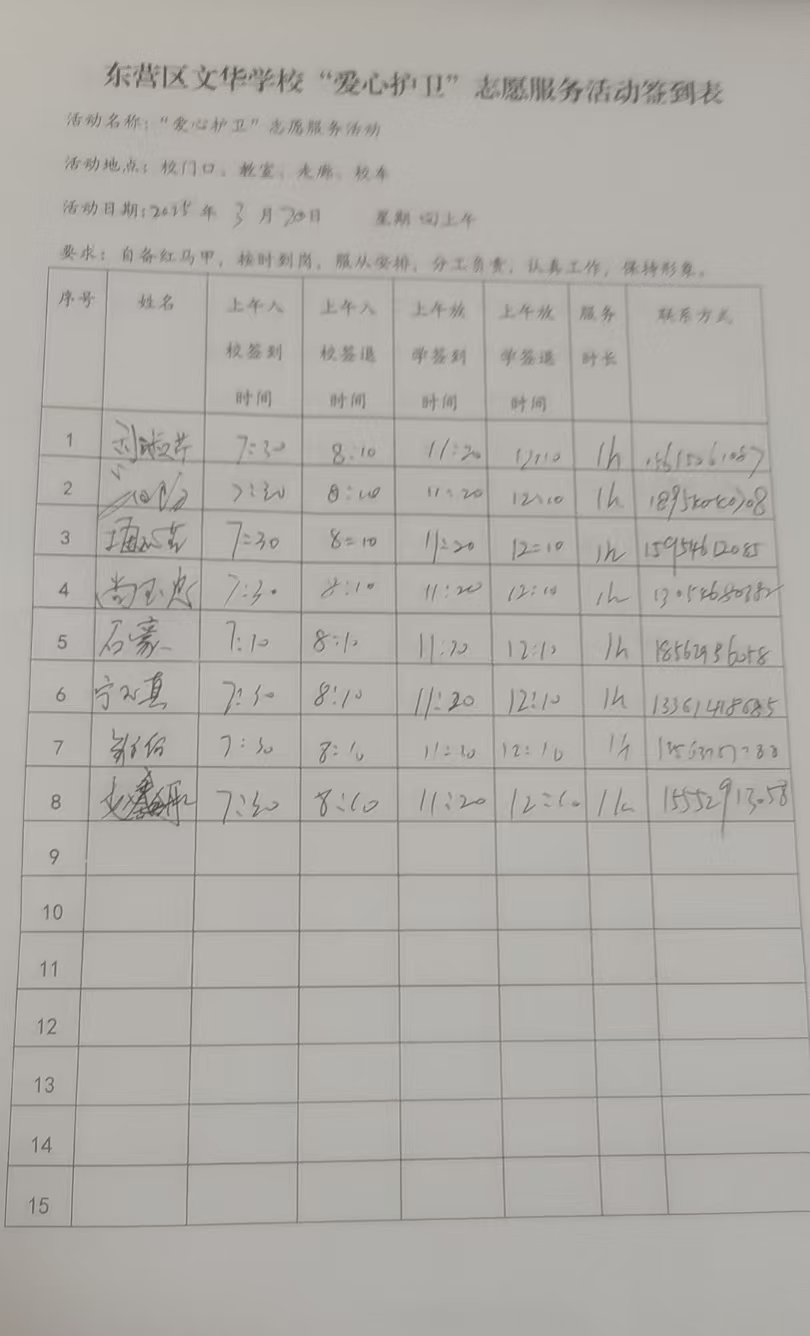 东营区文华学校“爱心护卫”志愿服务活动签到表
活动名称:“爱心护卫”志愿服务活动
活动地点:校门口、教室、走廊、校车
活动日期:2025年 3月20日 星期四上午
要求:自备红马甲,按时到岗,服从安排,分工负责,认真工作,保持形象。
序号 姓名 上午入校签到时间 上午入校签退时间 上午放学签到时间 上午放学签退时间 服务时长 联系方式
1 7:30 8:10 11:20 12:10 1h
2 7:30 8:10 11:20 12:10 1h
3 7=30 8=10 11=20 12=10 1h 15954612085
4 尚玉忠 7:30 8:10 11:20 12:10 1h
5 石豪 7:10 8:10 11:20 12:10 1h 18562936058
6 7:30 8:10 11:20 12:10 1h 13361418685
7 7:30 8:10 12:10
8 7:30 8:10 11:20 12:10 1h 15552913058
9
10
11
12
13
14
15